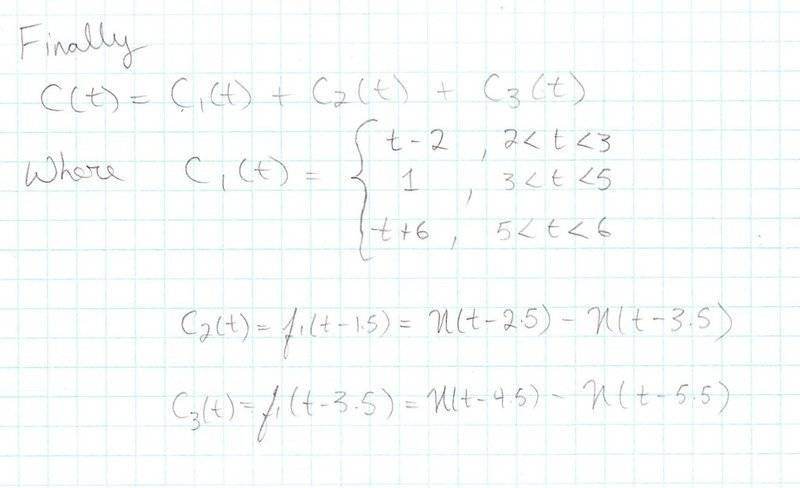 Finally
C(t) = C₁(t) + C₂(t) + C₃(t)
Where C₁(t) = { t-2 , 2<t<3
1 , 3<t<5
-t+6 , 5<t<6
C₂(t) = f₁(t-1.5) = u(t-2.5) - u(t-3.5)
C₃(t) = f₁(t-3.5) = u(t-4.5) - u(t-5.5)